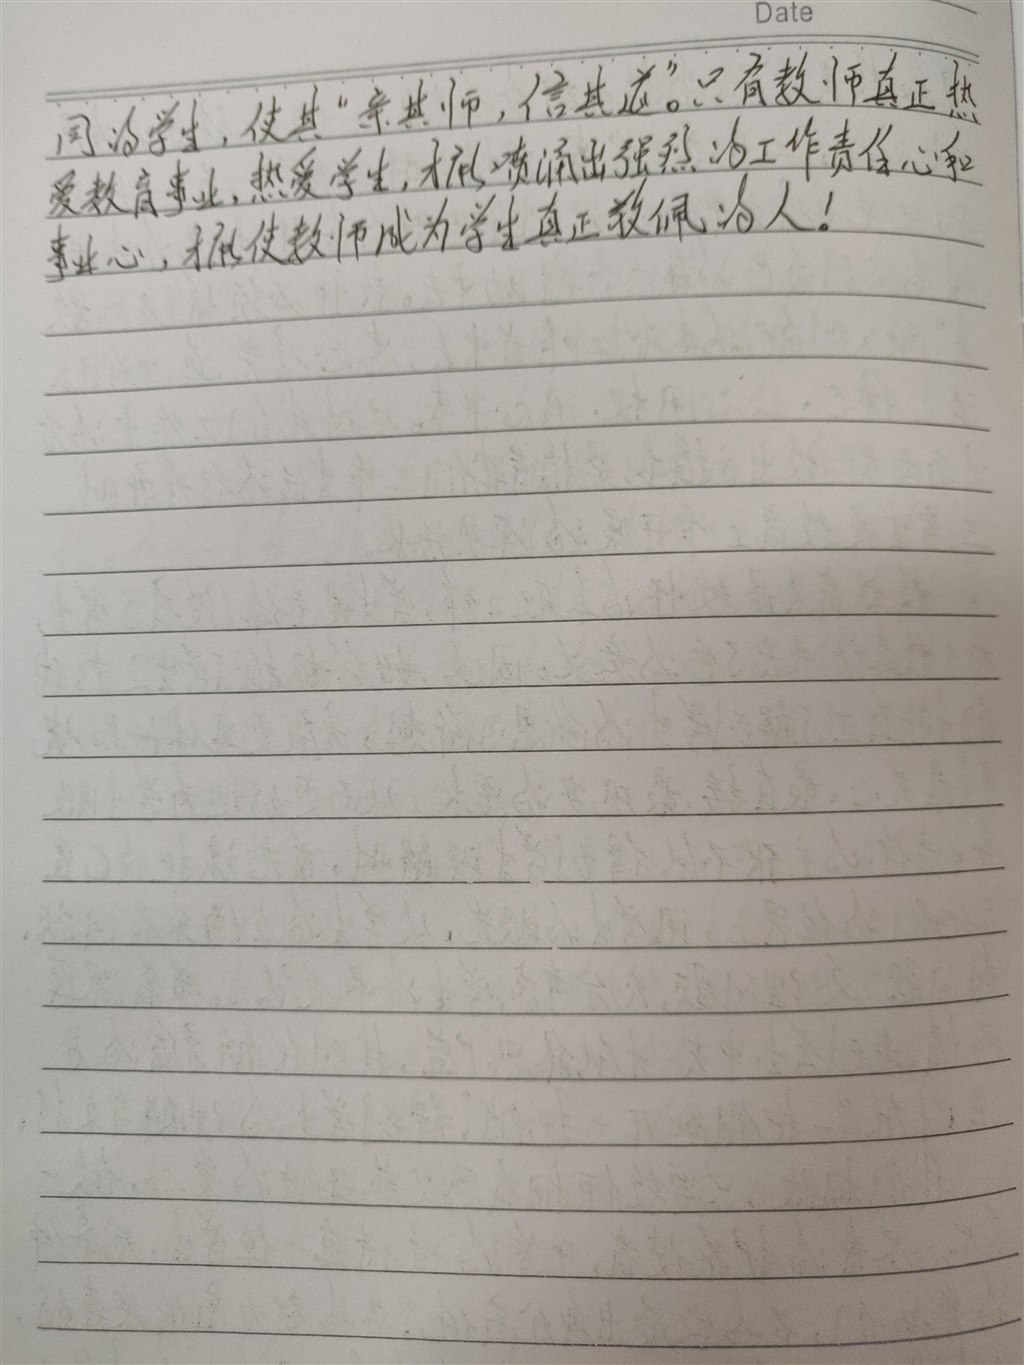 Date
同的学生，使其“亲其师，信其道”。只有教师真正热
爱教育事业，热爱学生，才能喷涌出强烈的工作责任心和
事业心，才能使教师成为学生真正敬佩的人！